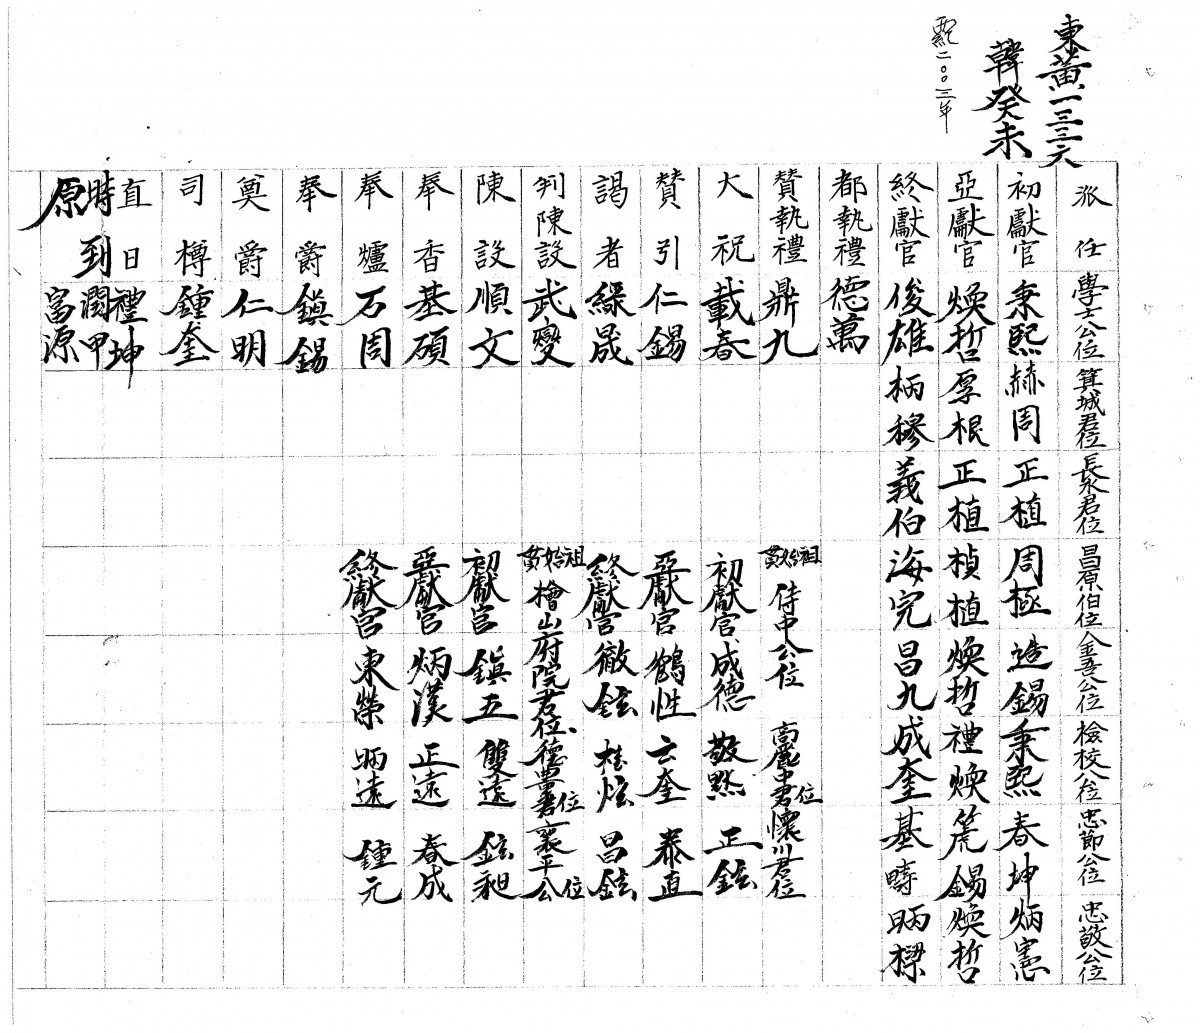 東黃一三三六
韓癸未
西紀二〇〇三年
派任 學士公位 箕城君位 長水君位 昌原伯位 金吾公位 檢校公位 忠節公位 忠敬公位
初獻官 秉熙 赫周 正植 周極 造錫 秉熙 春坤 炳憲
亞獻官 煥哲 厚根 正植 楨植 煥哲 禮煥 箎錫 煥哲
終獻官 俊雄 柄穆 義伯 海完 昌九 成奎 基疇 昞樑
都執禮 德萬
贊執禮 鼎九 貫始祖 侍中公位 高麗中君位 懷川君位
大祝 載春 初獻官 成德 敬熙 正鉉
贊引 仁錫 亞獻官 鶴性 云奎 泰直
謁者 綠晟 終獻官 徹鉉 桂炫 昌鉉
判陳設 武燮 貫始祖 檜山府院君位 德豊君位 襄平公位
陳設 順文 初獻官 鎭五 雙遠 鉉昶
奉香 基碩 亞獻官 炳漢 正遠 春成
奉爐 万周 終獻官 東榮 昞遠 鍾元
奉爵 鎭錫
奠爵 仁明
司樽 鍾奎
直日 禮坤
時到 潤甲
原 富源